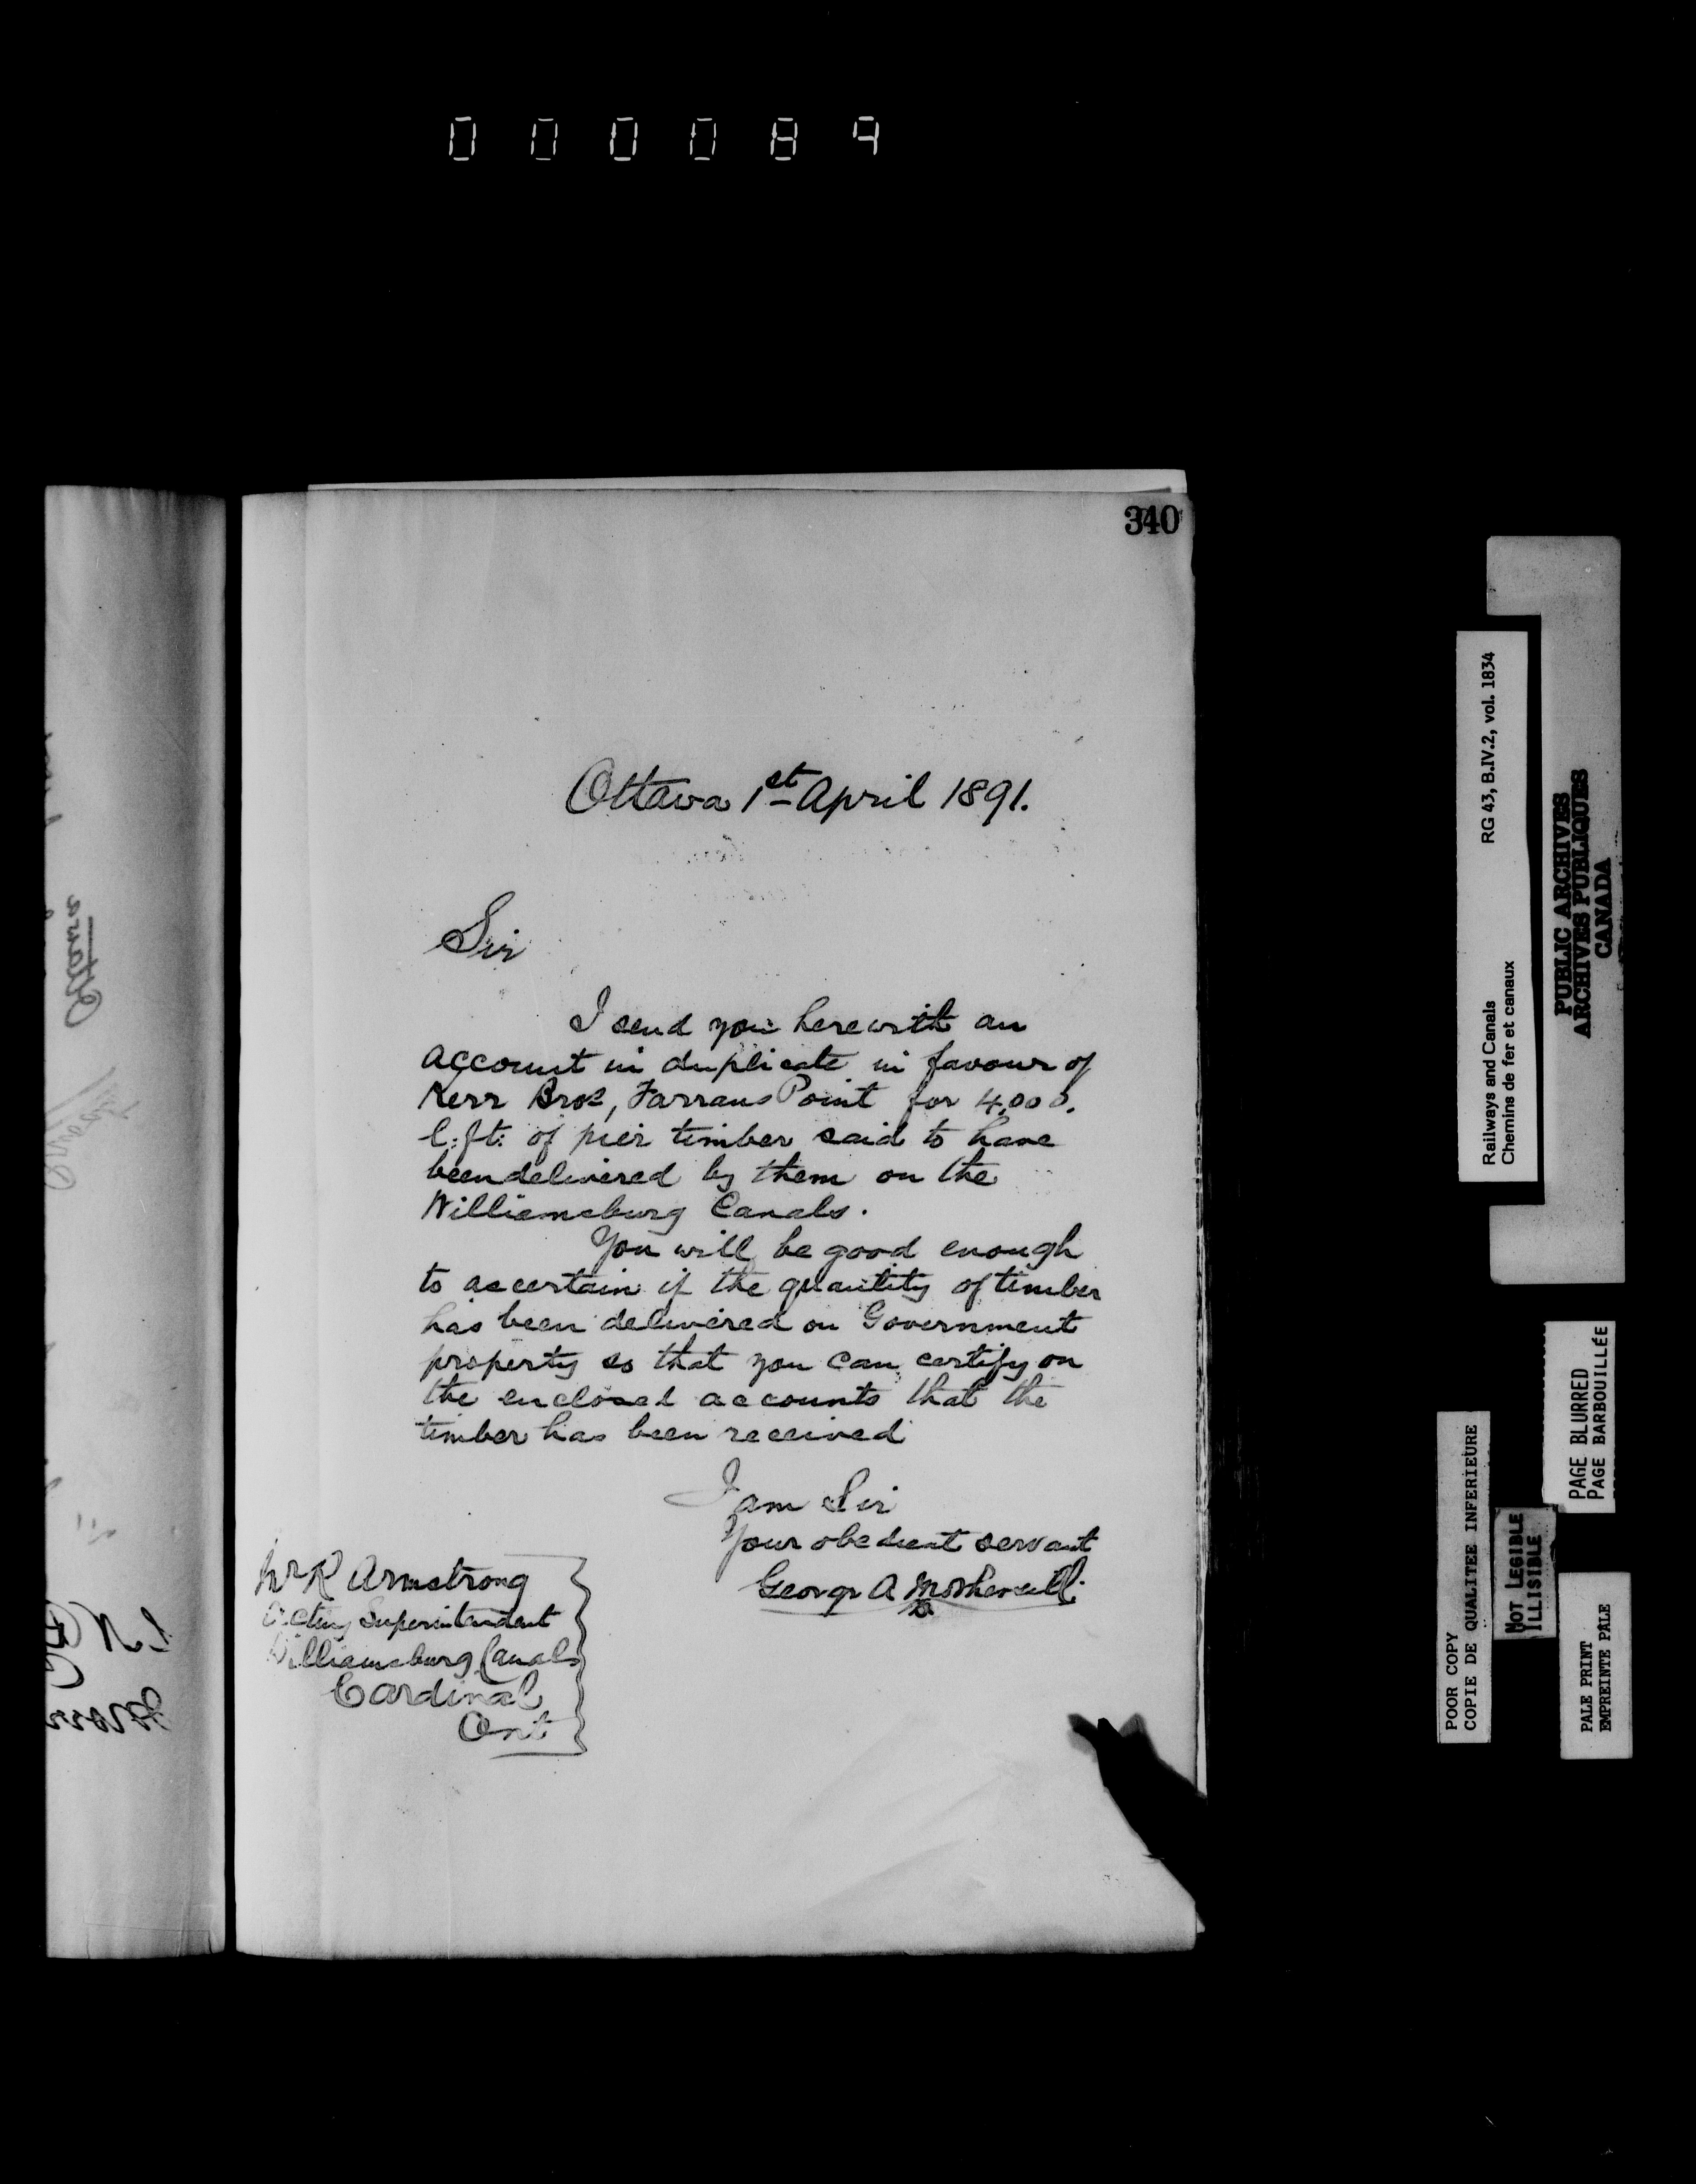 000089
340
Ottawa 1st April 1891.
Sir
I send you herewith an
account in duplicate in favour of
Kerr Bros, Farrans Point for 4,000.
l:ft: of pier timber said to have
been delivered by them on the
Williamsburg Canals.
You will be good enough
to ascertain if the quantity of timber
has been delivered on Government
property so that you can certify on
the enclosed accounts that the
timber has been received
I am Sir
Your obedient servant
George A Mothersill.
Mr R Armstrong
Acting Superintendent
Williamsburg Canals
Cardinal
Ont
Ottawa
RG 43, B.IV.2, vol. 1834
Railways and Canals
Chemins de fer et canaux
PUBLIC ARCHIVES
ARCHIVES PUBLIQUES
CANADA
PAGE BLURRED
PAGE BARBOUILLÉE
POOR COPY
COPIE DE QUALITEE INFERIEURE
NOT LEGIBLE
ILLISIBLE
PALE PRINT
EMPREINTE PALE